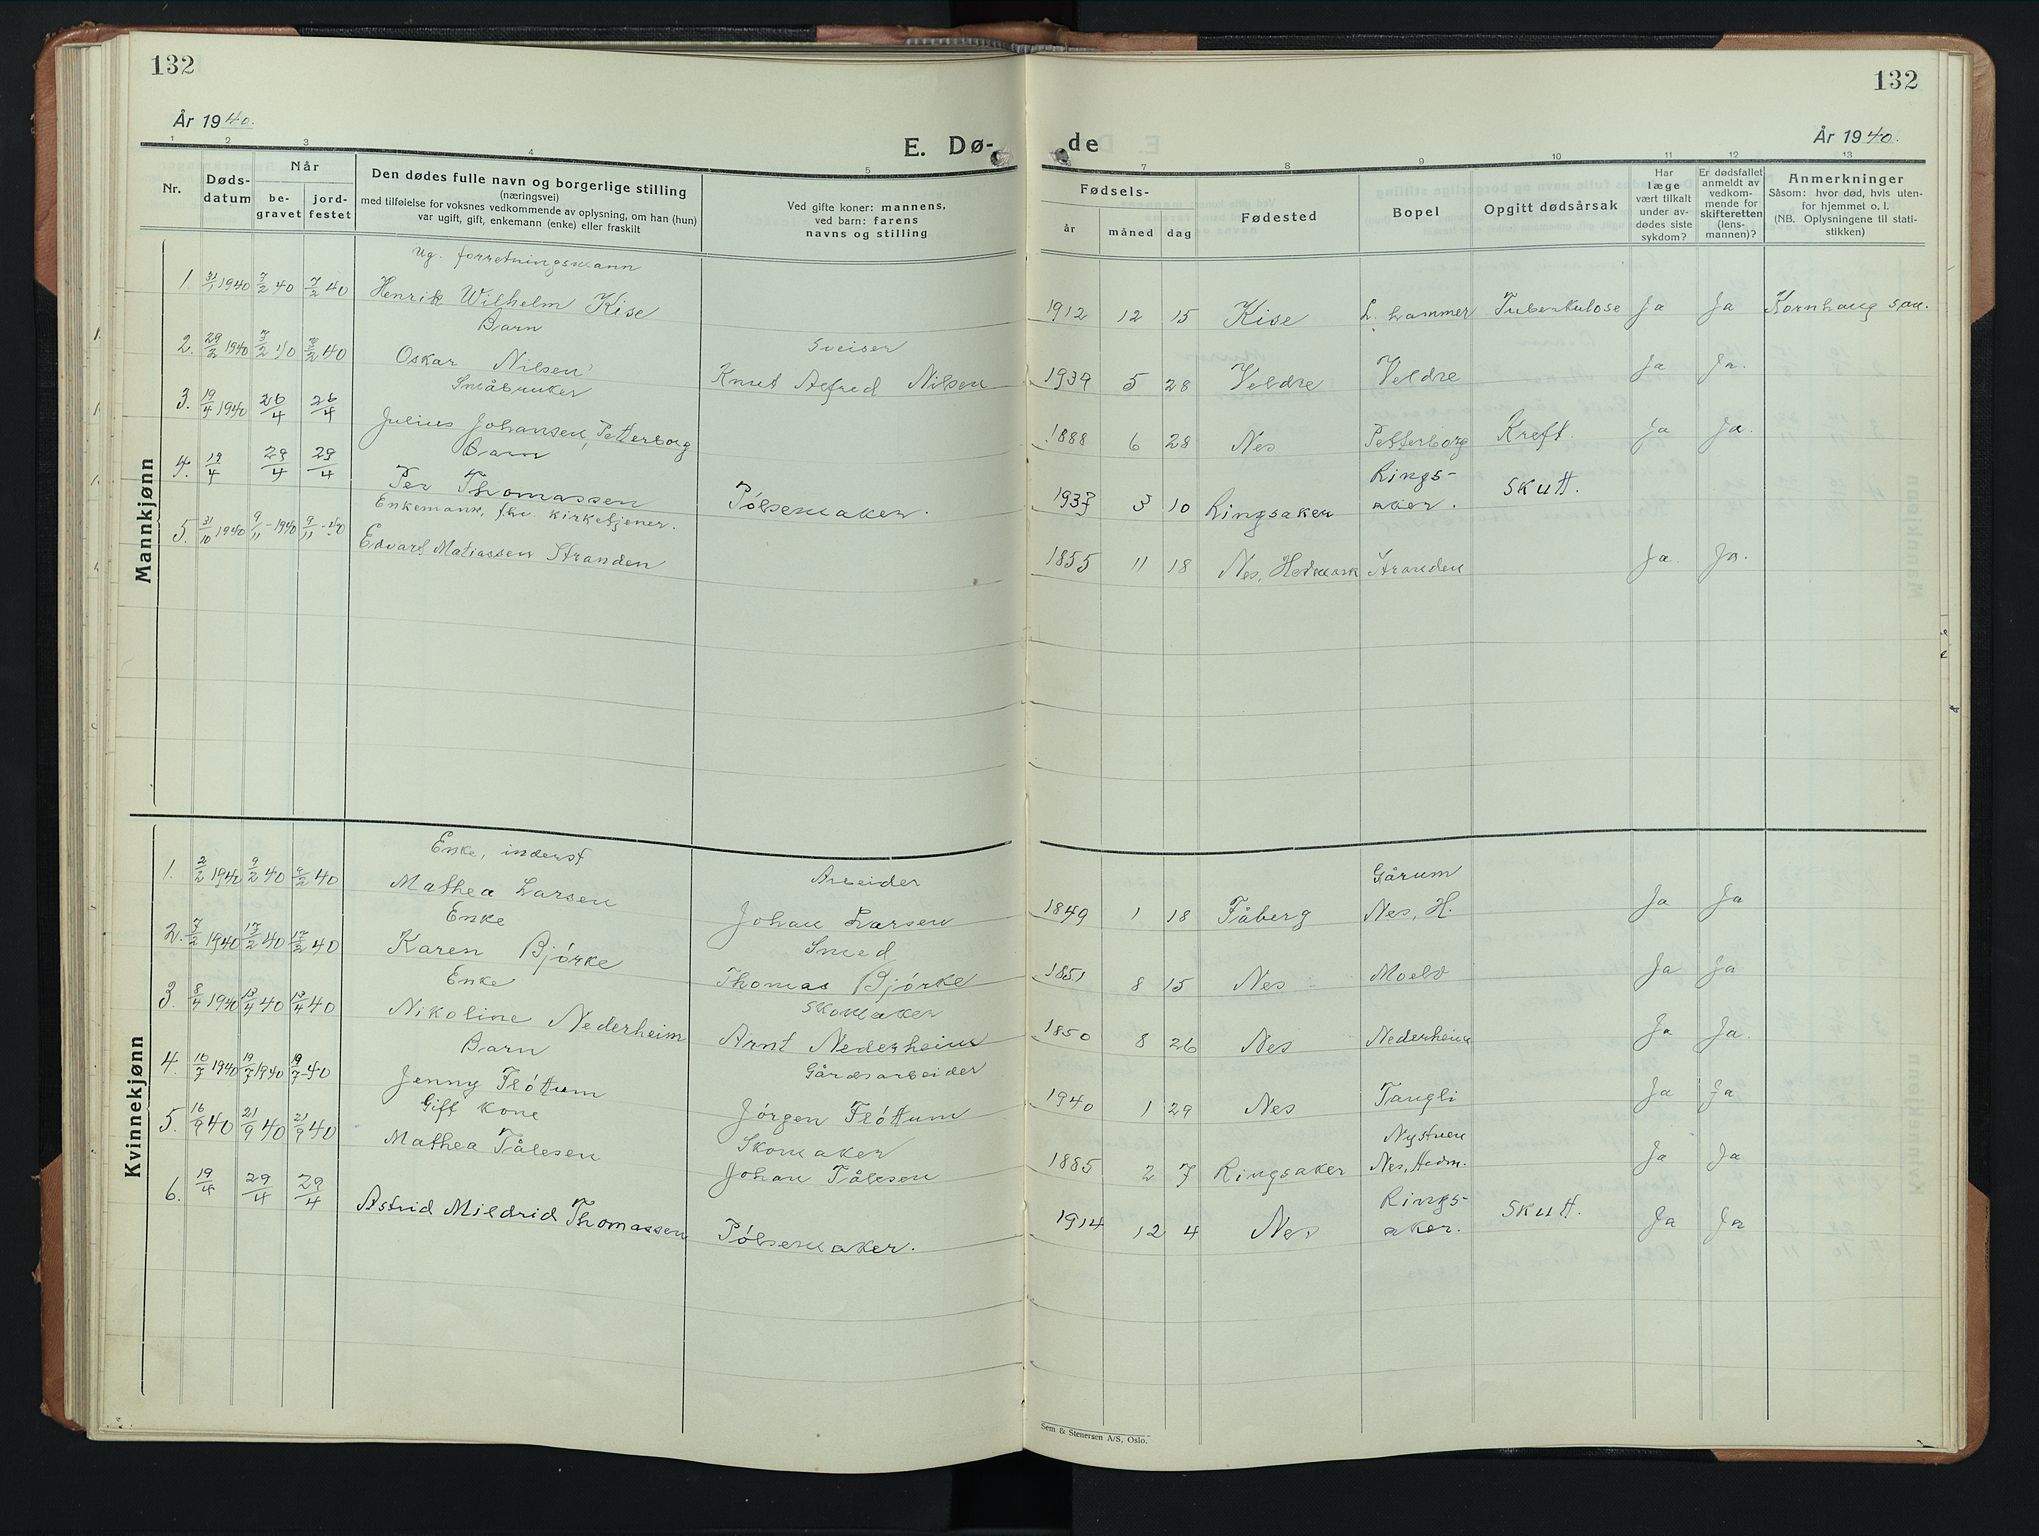 132
132
År 1940.
År 1940.
E. Dø-
de
1 2 3 4 5
7 8 9 10 11 12 13
Nr.
Døds-
datum
Når
be-
gravet
jord-
festet
Den dødes fulle navn og borgerlige stilling
(næringsvei)
med tilføielse for voksnes vedkommende av oplysning, om han (hun)
var ugift, gift, enkemann (enke) eller fraskilt
Ved gifte koner: mannens,
ved barn: farens
navns og stilling
Fødsels-
år
måned
dag
Fødested
Bopel
Opgitt dødsårsak
Har
læge
vært tilkalt
under av-
dødes siste
sykdom?
Er dødsfallet
anmeldt av
vedkom-
mende for
skifteretten
(lens-
mannen)?
Anmerkninger
Såsom: hvor død, hvis uten-
for hjemmet o. l.
(NB. Oplysningene til stati-
stikken)
Mannkjønn
Ug. forretningsmann
1. 31/1 1940 7/2 40 7/2 40 Henrik Wilhelm Kise 1912 12 15 Kise L. hammer Tuberkulose Ja Ja Kornhaug san.
Barn Sveiser
2. 29/2 1940 40 40 Oskar Nilsen Knut Alfred Nilsen 1939 5 28 Veldre Veldre Ja Ja.
Småbruker
3. 19/4 1940 26/4 26/4 Julius Johansen, Petterborg 1888 6 28 Nes Petterborg Kreft. Ja Ja.
Barn Rings-
4. 19/4 29/4 29/4 Per Thomassen Pølsemaker. 1937 3 10 Ringsaker aker. Skutt.
Enkemann, fhv. kirketjener.
5. 31/10 1940 9/11-1940 9/11-40 Edvart Matiassen Stranden 1855 11 18 Nes, Hedmark Stranden Ja. Ja.
Kvinnekjønn
Enke, inderst Arbeider Gårum
1. 2/2 1940 9/2 40 9/2 40 Mathea Larsen Johan Larsen 1849 1 18 Fåberg Nes, H. Ja Ja
Enke Smed
2. 7/2 1940 17/2 40 17/2 40 Karen Bjørke Thomas Bjørke 1851 8 15 Nes Moelv Ja Ja
Enke Skomaker
3. 8/4 1940 13/4 40 13/4 40 Nikoline Nederheim Arnt Nederheim 1850 8 26 Nes Nederheim Ja Ja.
Barn Gårdsarbeider
4. 10/7 1940 19/7 1940 19/7-40 Jenny Fløttum Jørgen Fløttum 1940 1 29 Nes Tangli Ja Ja
Gift kone Skomaker Nystuen
5. 16/9 40 21/9 40 21/9 40 Mathea Tålesen Johan Tålesen 1885 2 7 Ringsaker Nes, Hedm. Ja Ja
Rings-
6. 19/4 29/4 29/4 Astrid Mildrid Thomassen Pølsemaker. 1914 12 4 Nes aker. Skutt. Ja Ja
Sem & Stenersen A/S, Oslo.